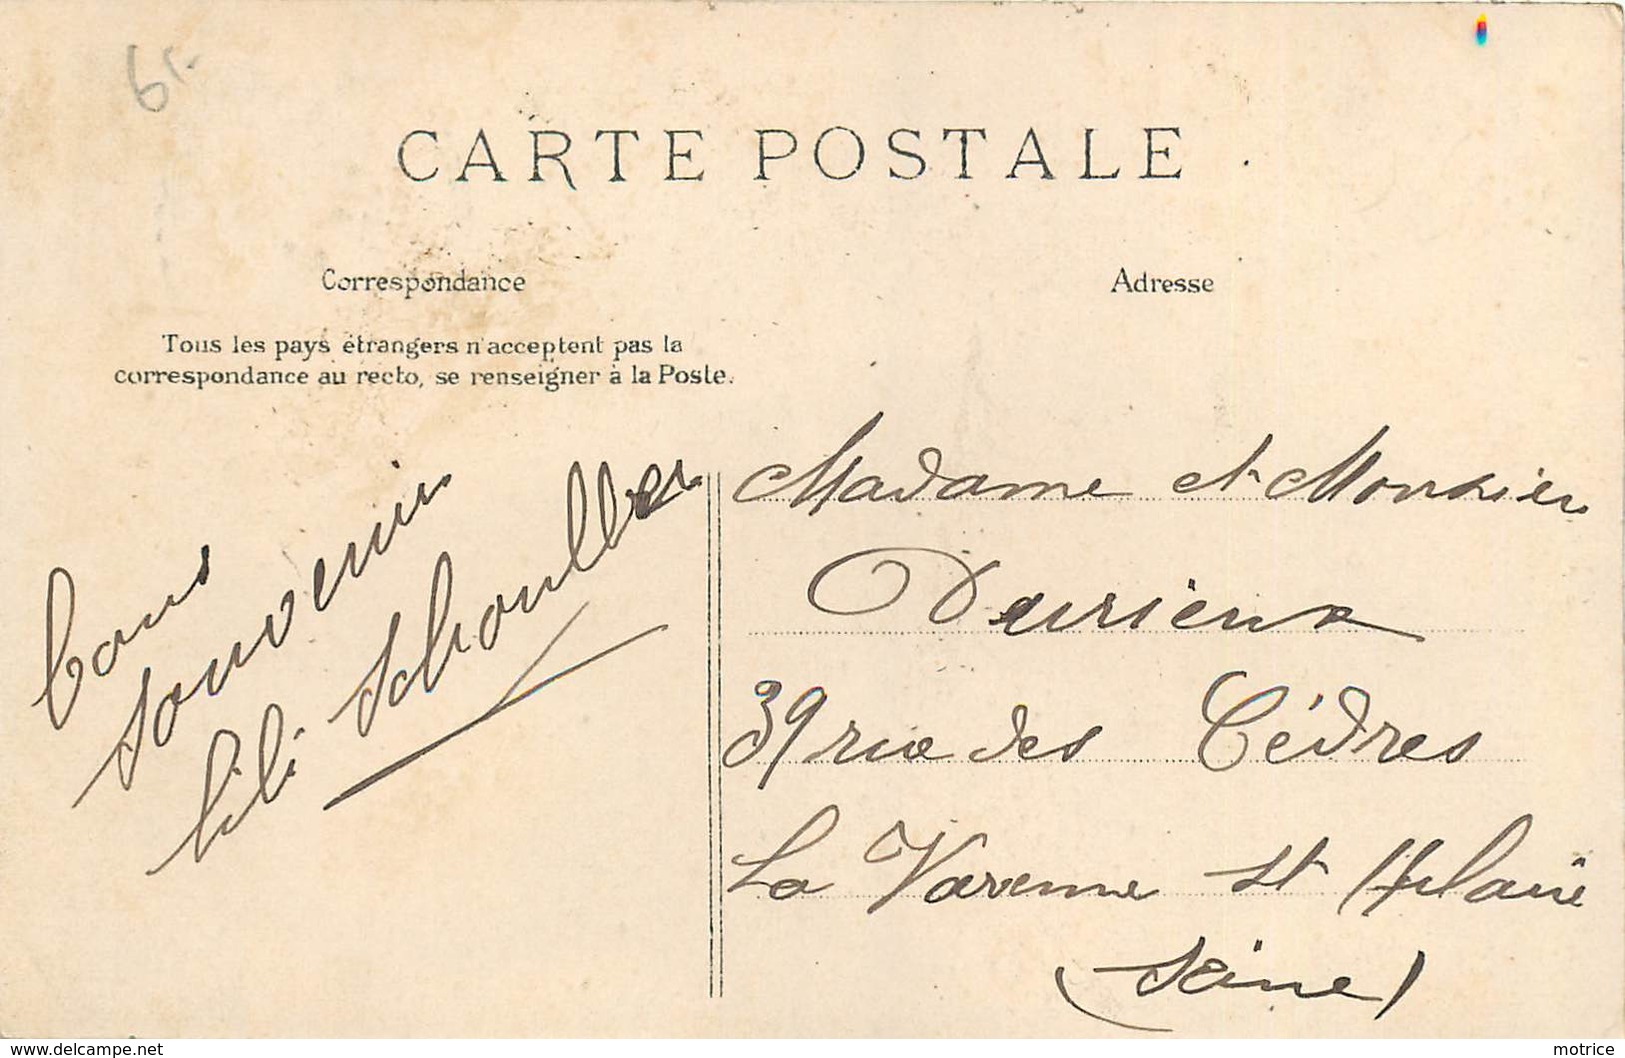 6f.
CARTE POSTALE
Correspondance
Adresse
Tous les pays étrangers n'acceptent pas la
correspondance au recto, se renseigner à la Poste.
bons
souvenirs
lili Schouller
Madame et Monsieur
Durieux
39 rue des Cèdres
La Varenne St Hilaire
(Seine)
www.delcampe.net
motrice